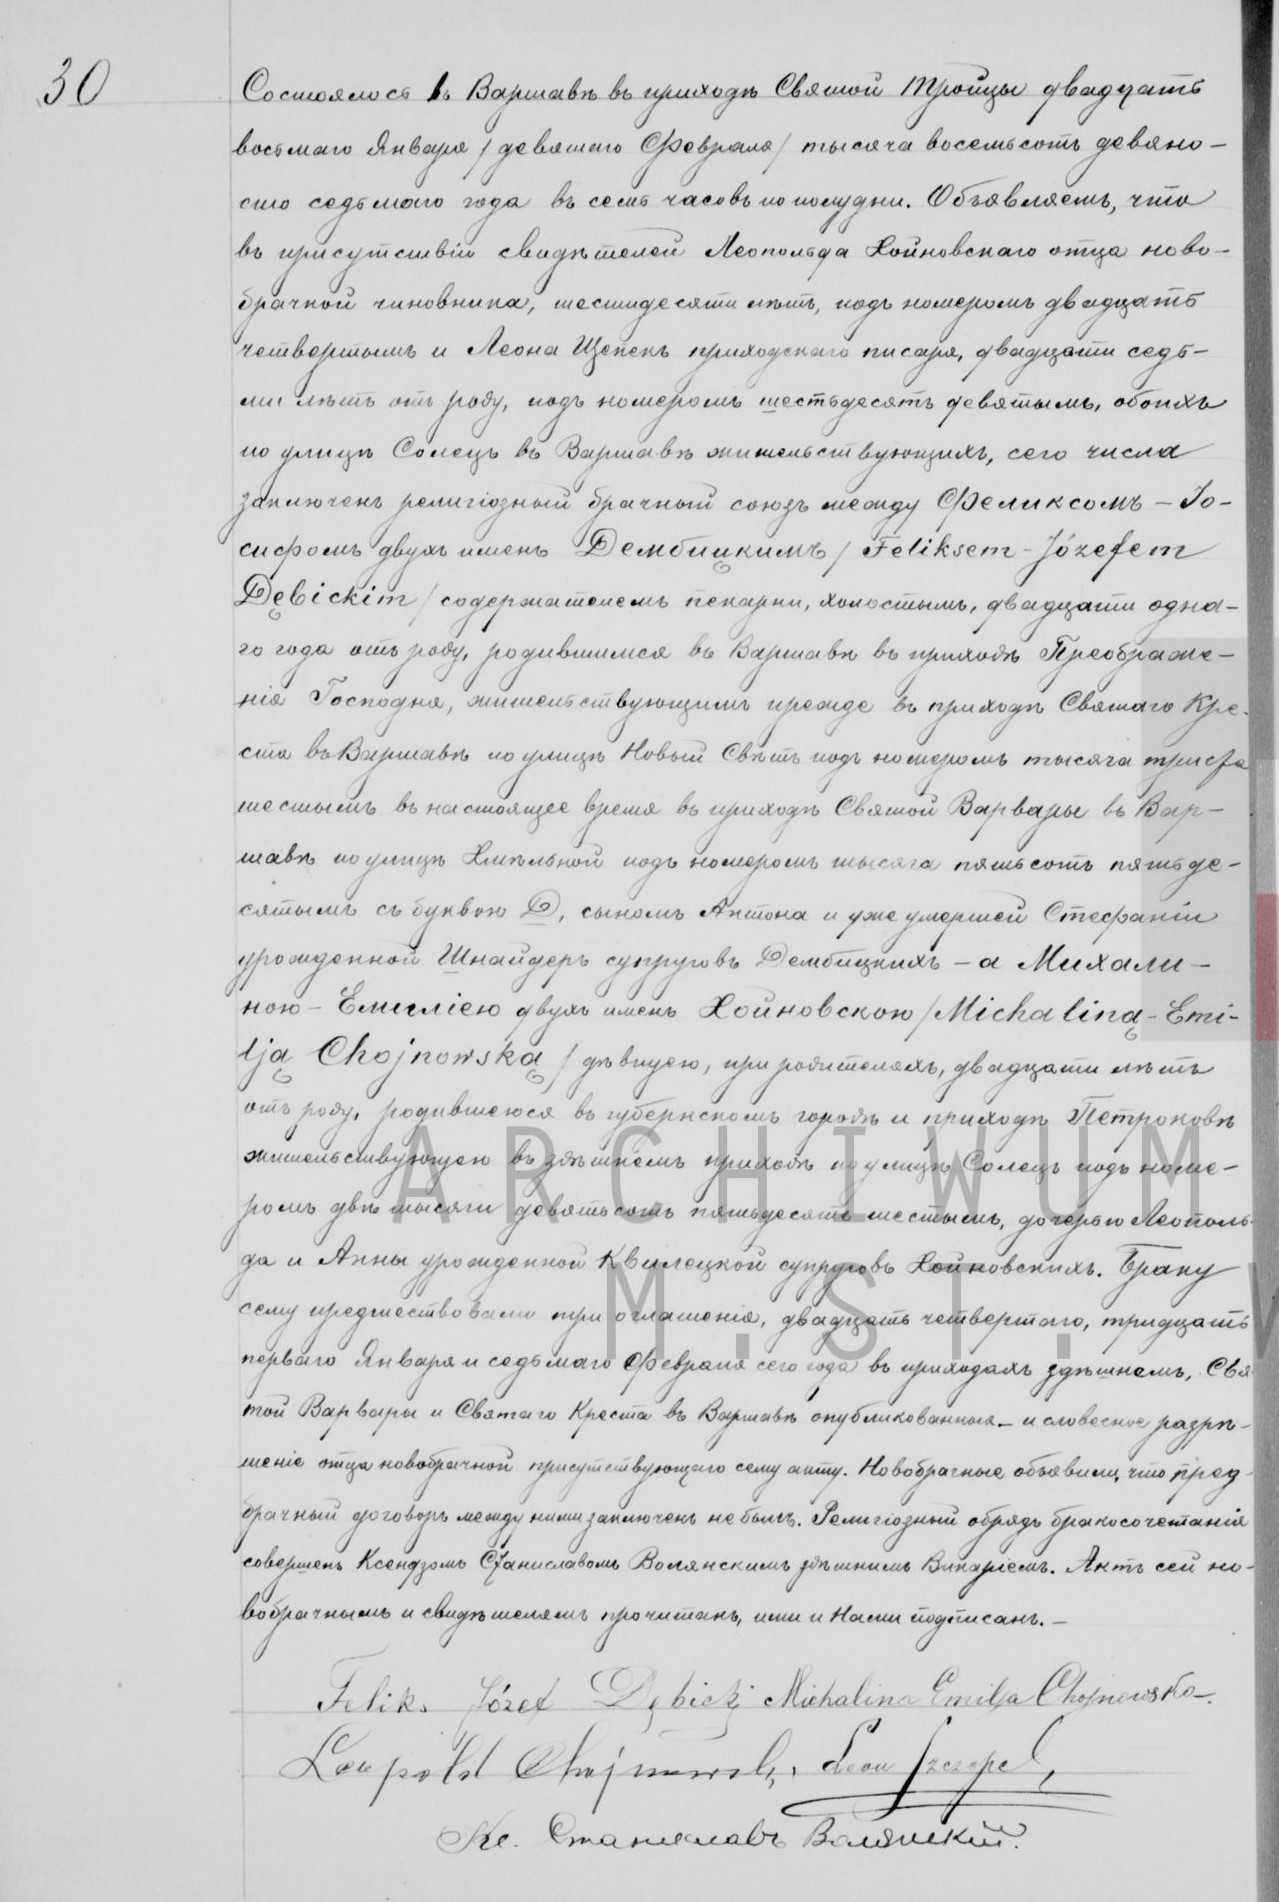 30
Состоялось въ Варшавѣ въ приходѣ Святой Тройцы двадцать
восьмаго Января / девятаго Февраля / тысяча восемьсотъ девяно-
сто седьмаго года въ семь часовъ по полудни. Объявляемъ, что
въ присутствіи свидѣтелей Леопольда Хойновскаго отца ново-
брачной чиновника, шестидесяти лѣтъ, подъ номеромъ двадцать
четвертымъ и Леона Щепекъ приходскаго писаря, двадцати седь-
ми лѣтъ отъ роду, подъ номеромъ шестьдесятъ девятымъ, обоихъ
по улицѣ Солецъ въ Варшавѣ жительствующихъ, сего числа
заключенъ религіозный брачный союзъ между Феликсомъ – Іо-
сифомъ двухъ именъ Дембицкимъ / Feliksem - Józefem
Dębickim / содержателемъ пекарни, холостымъ, двадцати одна-
го года отъ роду, родившимся въ Варшавѣ въ приходѣ Преображе-
нія Господня, жительствующимъ прежде въ приходѣ Святаго Кре-
ста въ Варшавѣ по улицѣ Новый Свѣтъ подъ номеромъ тысяча триста
шестымъ въ настоящее время въ приходѣ Святой Варвары въ Вар-
шавѣ по улицѣ Хмѣльной подъ номеромъ тысяча пятьсотъ пятьде-
сятымъ съ буквою D, сыномъ Антона и уже умершей Стефаніи
урожденной Шнайдеръ супруговъ Дембицкихъ – а Михали-
ною – Емиліею двухъ именъ Хойновскою / Michaliną - Emi-
lją Chojnowską / дѣвицею, при родителяхъ, двадцати лѣтъ
отъ роду, родившеюся въ губернскомъ городѣ и приходѣ Петроковѣ
жительствующею въ здѣшнемъ приходѣ по улицѣ Солецъ подъ номе-
ромъ двѣ тысячи девятьсотъ пятьдесятъ шестымъ, дочерью Леополь-
да и Анны урожденной Квилецкой супруговъ Хойновскихъ. Браку
сему предшествовали три оглашенія, двадцать четвертаго, тридцать
перваго Января и седьмаго Февраля сего года въ приходахъ здѣшнемъ, Свя-
той Варвары и Святаго Креста въ Варшавѣ опубликованныя – и словесное разрѣ-
шеніе отца новобрачной присутствующаго сему акту. Новобрачные объявили, что пред-
брачный договоръ между ними заключенъ не былъ. Религіозный обрядъ бракосочетанія
совершенъ Ксендзомъ Станиславомъ Волянскимъ здѣшнимъ Викаріемъ. Актъ сей но-
вобрачнымъ и свидѣтелямъ прочитанъ, ими и Нами подписанъ. –
Feliks Józef Dębicki Michalina Emilja Chojnowska
Leopold Chojnowski, Leon Szczepek,
Кс. Станиславъ Волянскій.
ARCHIWUM
M. ST. W